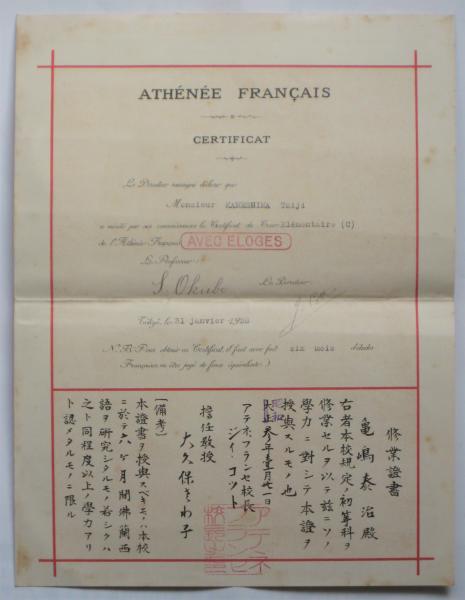 ATHÉNÉE FRANÇAIS
CERTIFICAT
Le Directeur soussigné déclare que
Monsieur KAMESHIMA Taiji
a mérité par ses connaissances le Certificat du Cours Elémentaire (C)
de l'Athénée Français
AVEC ELOGES
Le Professeur:
Le Directeur:
S. Okubo
Tôkyô, le 31 janvier 1928
N.B. Pour obtenir ce Certificat, il faut avoir fait six mois d'études
Françaises ou être jugé de force équivalente.
修業證書
亀嶋泰治殿
右者本校規定ノ初等科ヲ
修業セルヲ以テ茲ニソノ
學力ニ對シテ本證ヲ
授與スルモノ也
昭和
大正参年壹月卅一日
アテネ、フランセ校長
ジイ、コット
擔任教授
大久保そわ子
〔備考〕
本證書ヲ授與スベキモノハ本校
ニ於テ六ヶ月間佛蘭西
語ヲ研究シタルモノ若シクハ
之ト同程度以上ノ學力アリ
ト認メタルモノニ限ル